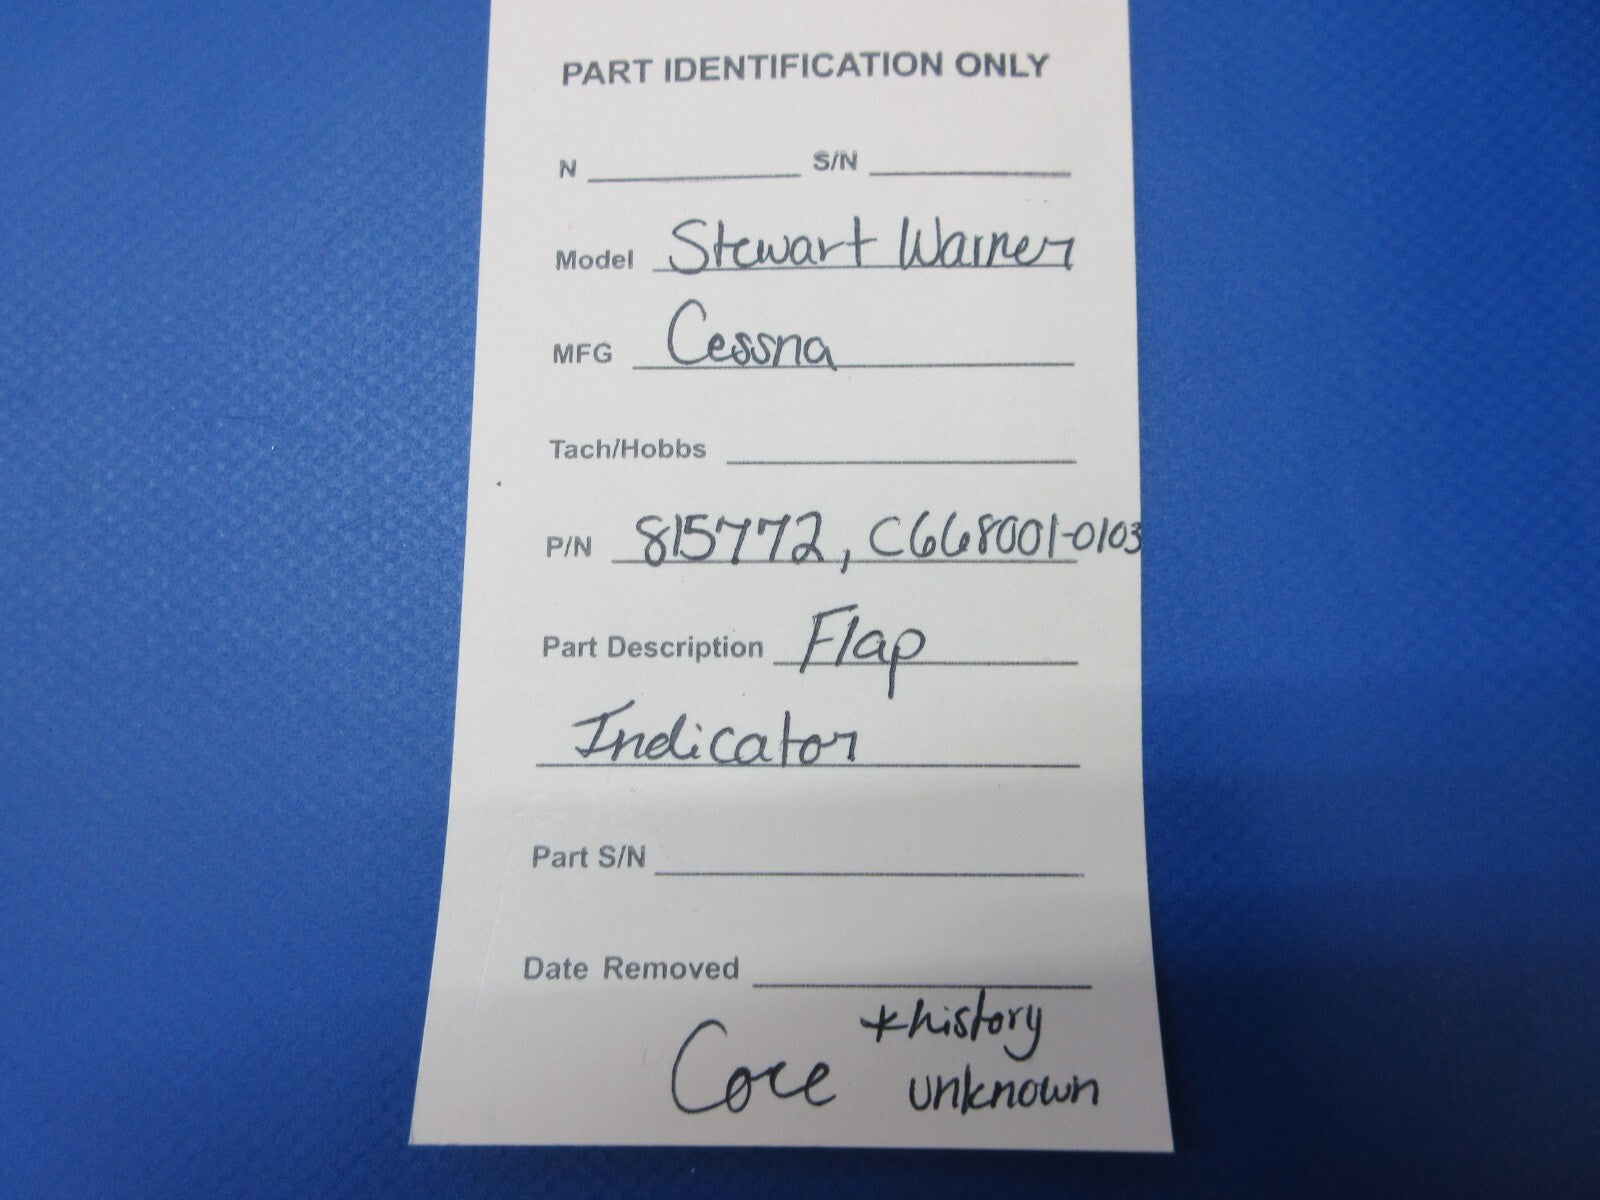 PART IDENTIFICATION ONLY
N S/N
Model Stewart Warner
MFG Cessna
Tach/Hobbs
P/N 815772, C668001-0103
Part Description Flap
Indicator
Part S/N
Date Removed
*history
Core unknown